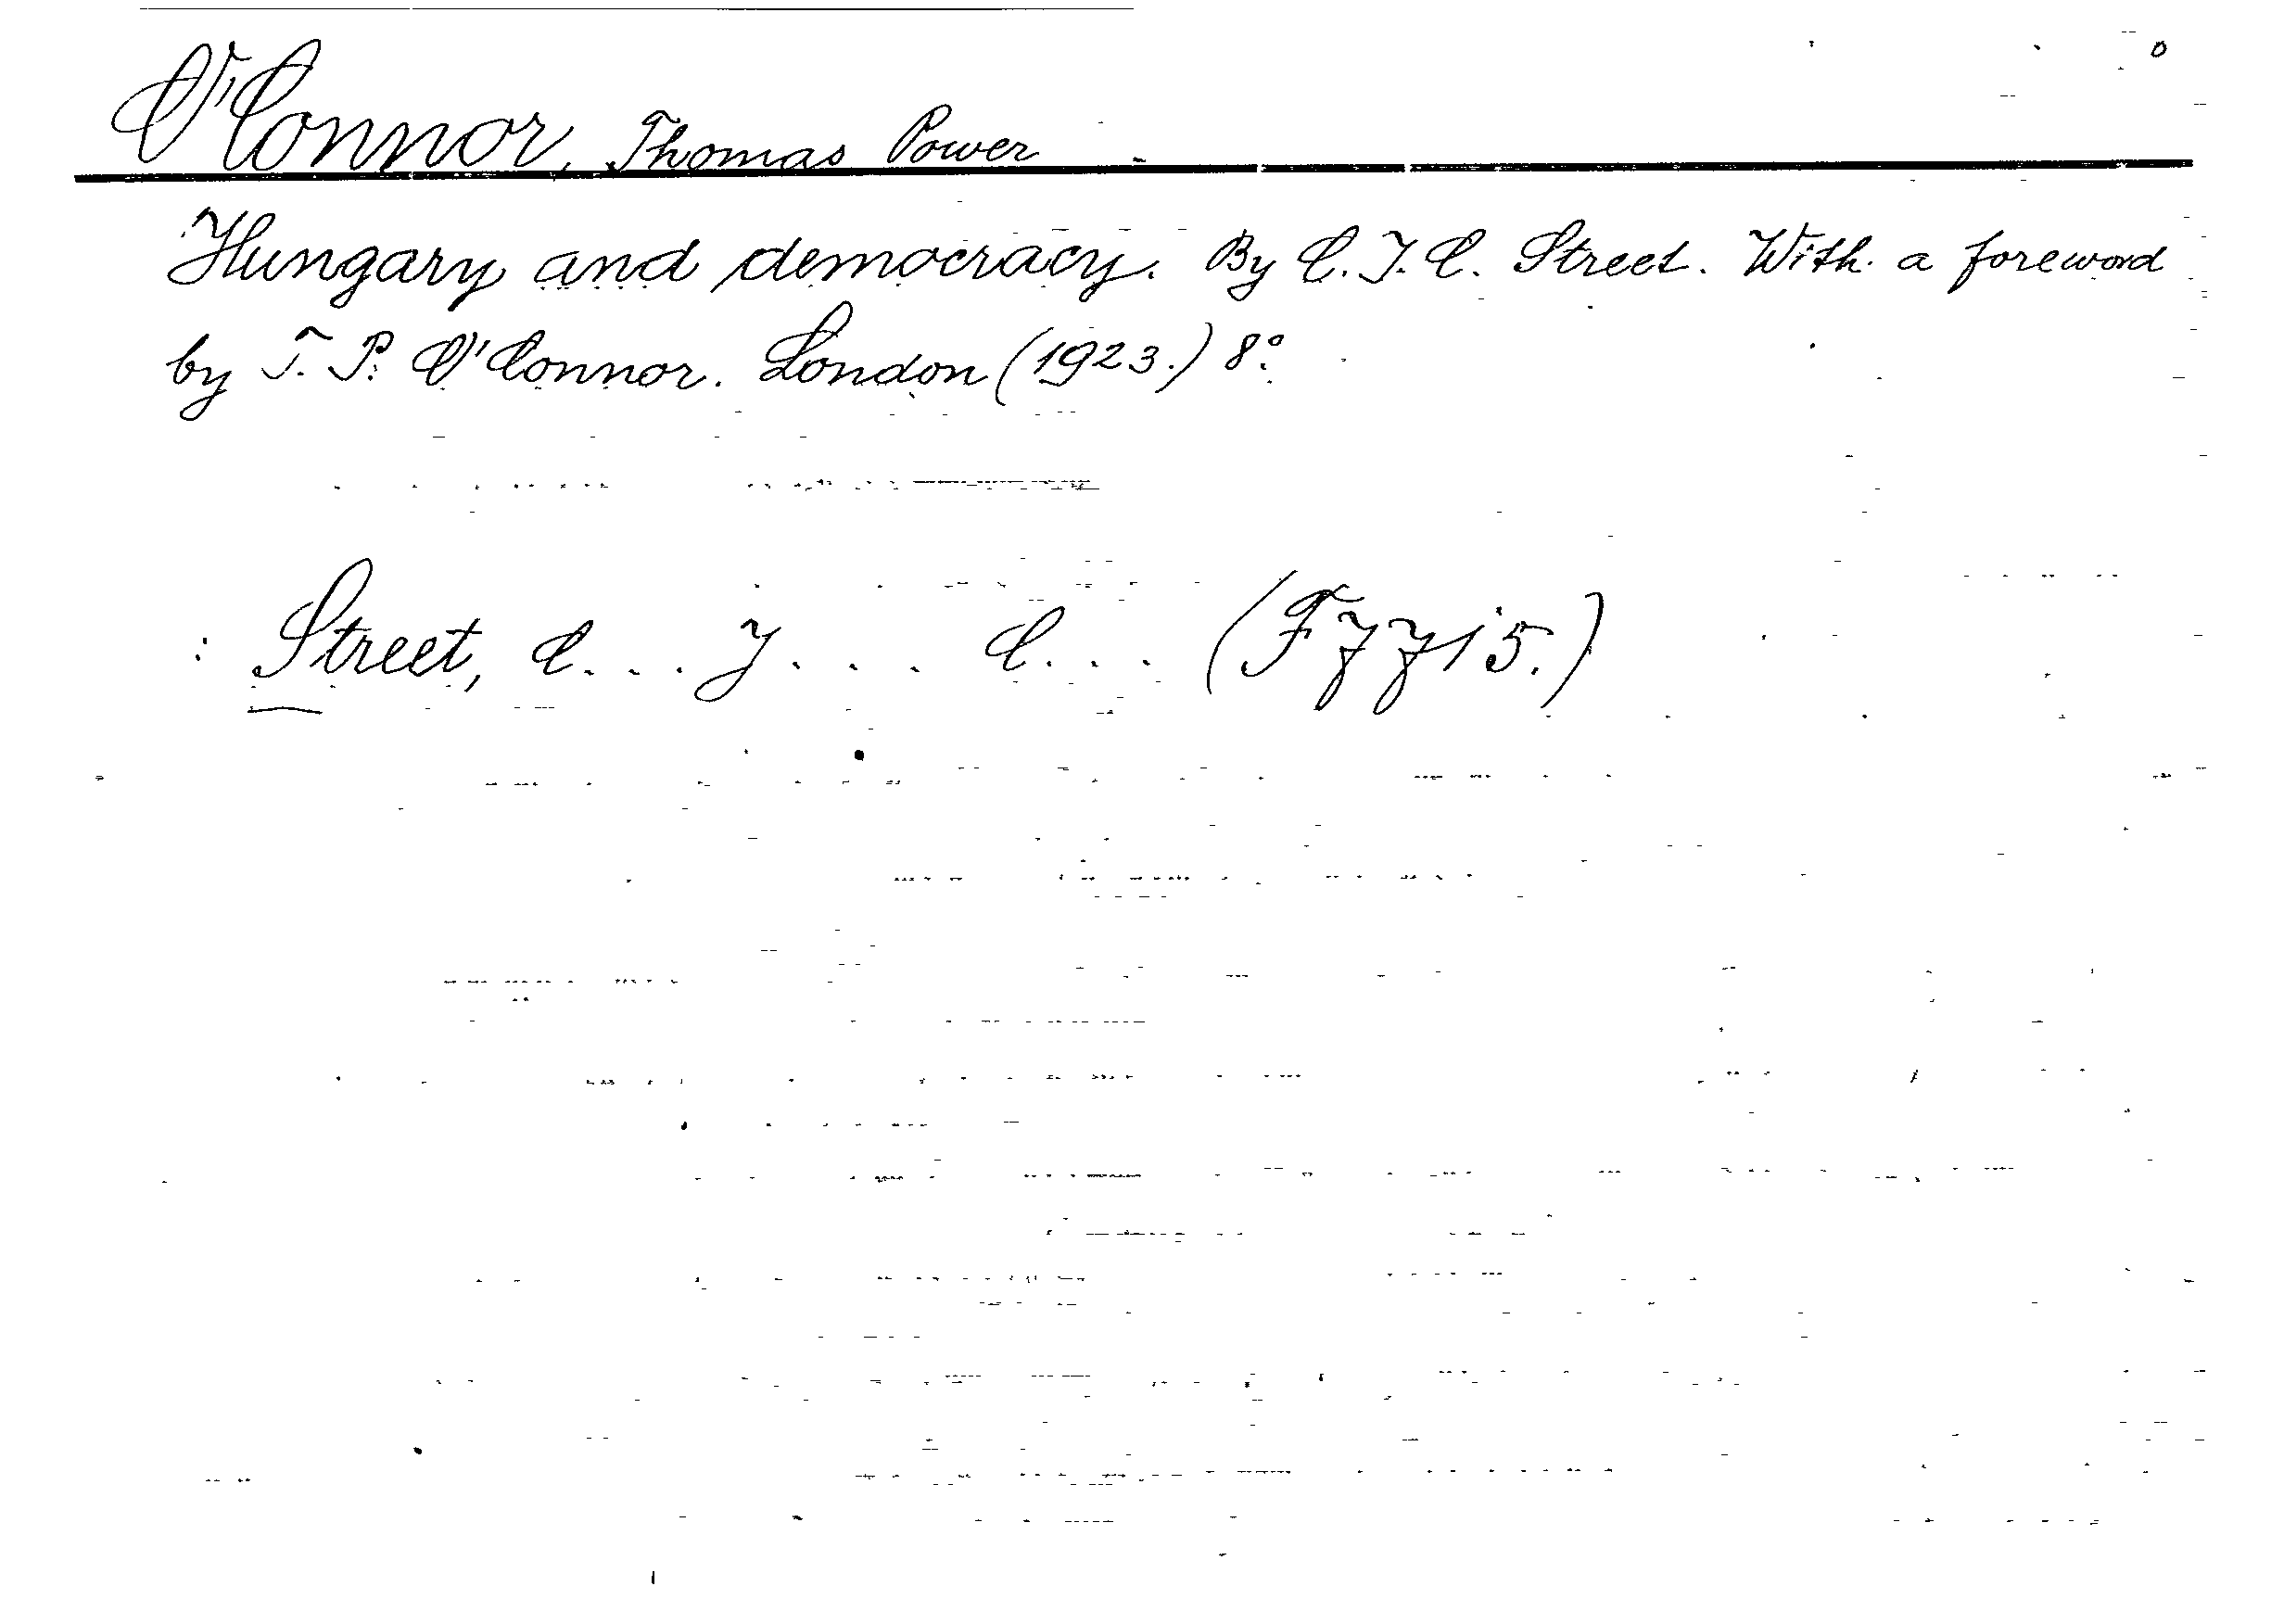 O'Connor, Thomas Power
Hungary and democracy. By C. J. C. Street. With a foreword
by T. P. O'Connor. London (1923.) 8°.
: Street, C... J... C... (F7715.)